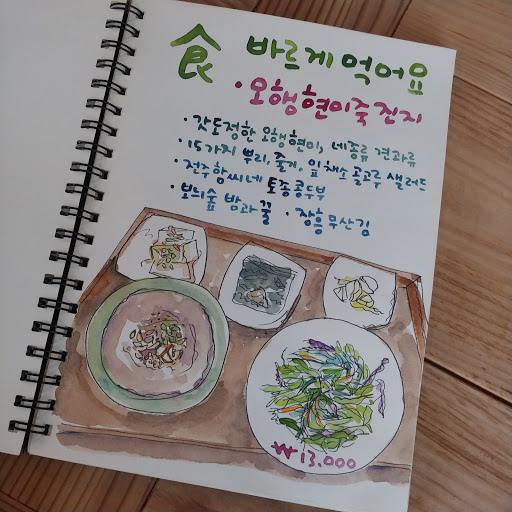 食 바르게 먹어요
·오행현미죽 진지
·갓도정한 오행현미, 네종류 견과류
·15가지 뿌리, 줄기, 잎채소 골고루 샐러드
·전주함씨네 토종콩두부
·보늬숲 밤과 꿀 ·장흥무산김
₩13.000